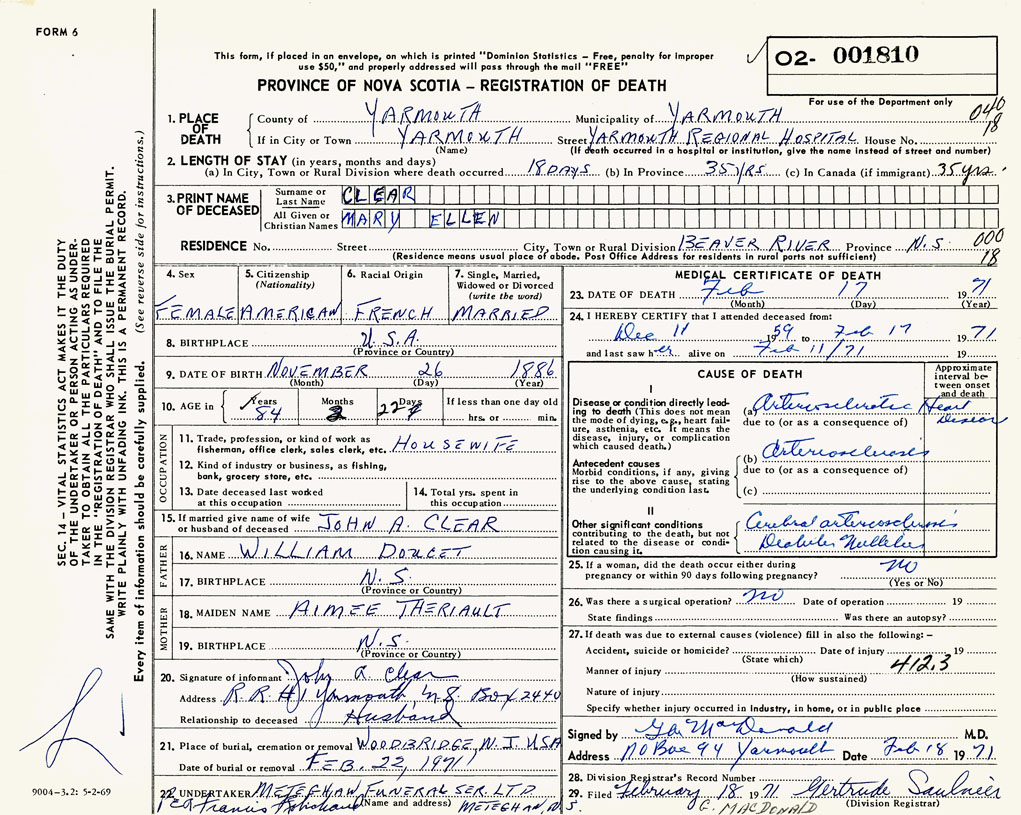 FORM 6
This form, if placed in an envelope, on which is printed "Dominion Statistics – Free, penalty for improper
use $50," and properly addressed will pass through the mail "FREE"
O2- 001810
For use of the Department only
PROVINCE OF NOVA SCOTIA – REGISTRATION OF DEATH
1. PLACE OF DEATH
County of YARMOUTH Municipality of YARMOUTH 040
18
If in City or Town YARMOUTH Street YARMOUTH REGIONAL HOSPITAL House No.
(Name) (If death occurred in a hospital or institution, give the name instead of street and number)
2. LENGTH OF STAY (in years, months and days)
(a) In City, Town or Rural Division where death occurred 18 DAYS (b) In Province 35 YRS (c) In Canada (if immigrant) 35 yrs.
3. PRINT NAME OF DECEASED
Surname or Last Name CLEAR
All Given or Christian Names MARY ELLEN
RESIDENCE No. Street City, Town or Rural Division BEAVER RIVER Province N.S. 000
18
(Residence means usual place of abode. Post Office Address for residents in rural parts not sufficient)
4. Sex
FEMALE
5. Citizenship
(Nationality)
AMERICAN
6. Racial Origin
FRENCH
7. Single, Married,
Widowed or Divorced
(write the word)
MARRIED
8. BIRTHPLACE U.S.A.
(Province or Country)
9. DATE OF BIRTH NOVEMBER 26 1886
(Month) (Day) (Year)
10. AGE in Years 84 Months Days If less than one day old
hrs. or min.
OCCUPATION
11. Trade, profession, or kind of work as
fisherman, office clerk, sales clerk, etc. HOUSEWIFE
12. Kind of industry or business, as fishing,
bank, grocery store, etc.
13. Date deceased last worked
at this occupation
14. Total yrs. spent in
this occupation
15. If married give name of wife
or husband of deceased JOHN A. CLEAR
FATHER
16. NAME WILLIAM DOUCET
17. BIRTHPLACE N.S.
(Province or Country)
MOTHER
18. MAIDEN NAME AIMEE THERIAULT
19. BIRTHPLACE N.S.
(Province or Country)
20. Signature of informant John A. Clear
Address R.R #1 Yarmouth, N.S. Box 2440
Relationship to deceased Husband
21. Place of burial, cremation or removal WOODBRIDGE, N.J. USA
Date of burial or removal FEB. 22, 1971
22. UNDERTAKER METEGHAN FUNERAL SER. LTD.
Francis (Name and address) METEGHAN, N.
S.
MEDICAL CERTIFICATE OF DEATH
23. DATE OF DEATH Feb 17 1971
(Month) (Day) (Year)
24. I HEREBY CERTIFY that I attended deceased from:
Dec 11 1959 to Feb 17 1971
and last saw her alive on Feb 11/71 19
CAUSE OF DEATH
Approximate
interval be-
tween onset
and death
I
Disease or condition directly lead-
ing to death (This does not mean
the mode of dying, e.g., heart fail-
ure, asthenia, etc. It means the
disease, injury, or complication
which caused death.)
(a) Arteriosclerotic Heart
Disease
due to (or as a consequence of)
Antecedent causes
Morbid conditions, if any, giving
rise to the above cause, stating
the underlying condition last.
(b) Arteriosclerosis
due to (or as a consequence of)
(c)
II
Other significant conditions
contributing to the death, but not
related to the disease or condi-
tion causing it.
Cerebral arteriosclerosis
Diabetes Mellitus
25. If a woman, did the death occur either during
pregnancy or within 90 days following pregnancy? no
(Yes or No)
26. Was there a surgical operation? no Date of operation 19
State findings Was there an autopsy?
27. If death was due to external causes (violence) fill in also the following: –
Accident, suicide or homicide? Date of injury 19
(State which)
Manner of injury 412.3
(How sustained)
Nature of injury
Specify whether injury occurred in industry, in home, or in public place
Signed by G. MacDonald M.D.
Address PO Box 94 Yarmouth Date Feb 18 1971
28. Division Registrar's Record Number
29. Filed February 18 1971 Gertrude Saulnier
(Division Registrar)
G. MACDONALD
SEC. 14 – VITAL STATISTICS ACT MAKES IT THE DUTY
OF THE UNDERTAKER OR PERSON ACTING AS UNDER-
TAKER TO OBTAIN ALL THE PARTICULARS REQUIRED
IN THE "REGISTRATION OF DEATH" AND TO FILE THE
SAME WITH THE DIVISION REGISTRAR WHO SHALL ISSUE THE BURIAL PERMIT.
WRITE PLAINLY WITH UNFADING INK. THIS IS A PERMANENT RECORD.
Every item of information should be carefully supplied. (See reverse side for instructions.)
9004-3.2: 5-2-69